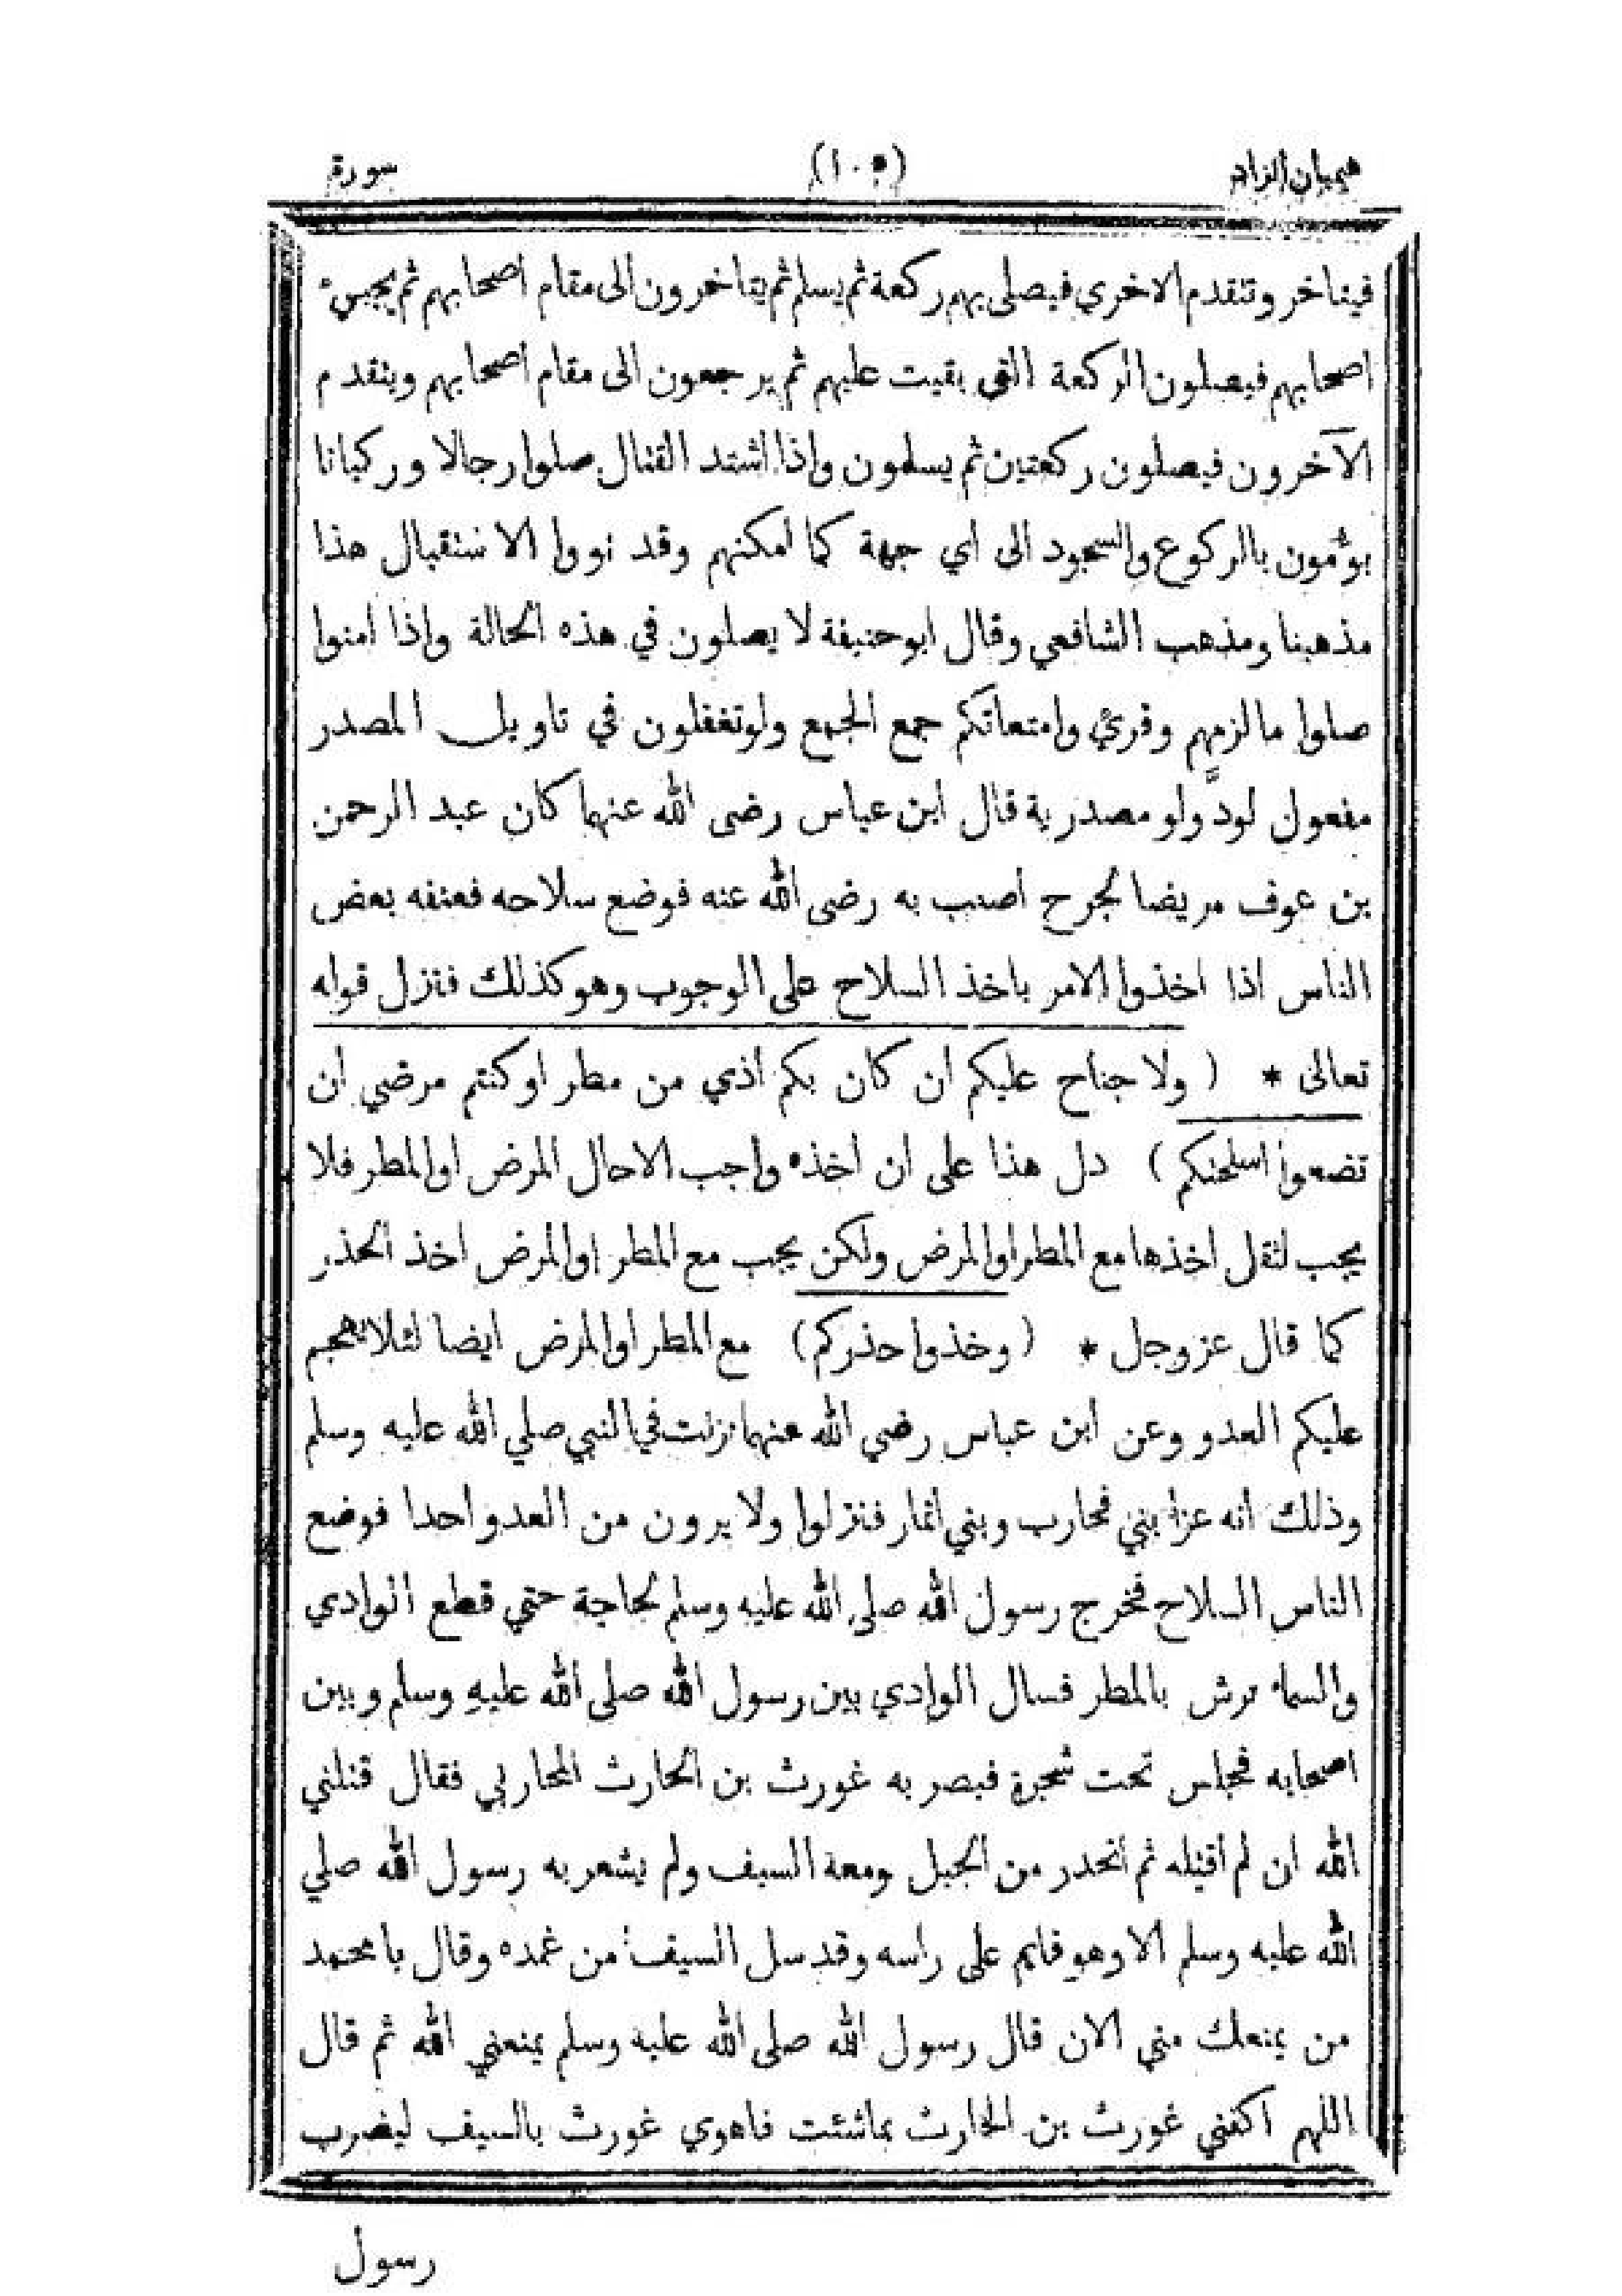 هيميان الزاد (١٠٥) سورة
فيتاخر وتتقدم الاخري فيصلى بهم ركعة ثم يسلم ثم يتاخرون الى مقام اصحابهم ثم يجىء
اصحابهم فيصلون الركعة التى بقيت عليهم ثم يرجعون الى مقام اصحابهم ويتقدم
الآخرون فيصلون ركعتين ثم يسلمون واذا اشتد القتال صلوا رجالا وركبانا
يؤمون بالركوع والسجود الى اي جهة كما امكنهم وقد نووا الاستقبال هذا
مذهبنا ومذهب الشافعي وقال ابو حنيفة لا يصلون في هذه الحالة واذا امنوا
صلوا ما لزمهم وقرئ وامتعاتكم جمع الجمع ولو تغفلون في تاويل المصدر
مفعول لودَّ ولو مصدرية قال ابن عباس رضى الله عنهما كان عبد الرحمن
بن عوف مريضا لجرح اصيب به رضى الله عنه فوضع سلاحه فعنفه بعض
الناس اذا اخذوا الامر باخذ السلاح على الوجوب وهو كذلك فنزل قوله
تعالى * ( ولا جناح عليكم ان كان بكم اذي من مطر او كنتم مرضي ان
تضعوا اسلحتكم ) دل هذا على ان اخذه واجب الا حال المرض او المطر فلا
يجب لثقل اخذها مع المطر او المرض ولكن يجب مع المطر او المرض اخذ الحذر
كما قال عز وجل * ( وخذوا حذركم ) مع المطر او المرض ايضا لئلا يهجم
عليكم العدو وعن ابن عباس رضي الله عنهما نزلت في النبي صلي الله عليه وسلم
وذلك انه غزا بني محارب وبني انمار فنزلوا ولا يرون من العدو احدا فوضع
الناس السلاح فخرج رسول الله صلى الله عليه وسلم لحاجة حتي قطع الوادي
والسماء ترش بالمطر فسال الوادي بين رسول الله صلى الله عليه وسلم وبين
اصحابه فجلس تحت شجرة فبصر به غورث بن الحارث المحاربي فقال قتلني
الله ان لم اقتله ثم انحدر من الجبل ومعه السيف ولم يشعر به رسول الله صلي
الله عليه وسلم الا وهو قايم على راسه وقد سل السيف من غمده وقال يا محمد
من يمنعك مني الان قال رسول الله صلى الله عليه وسلم يمنعني الله ثم قال
اللهم اكفني غورث بن الحارث بما شئت فاهوي غورث بالسيف ليضرب
رسول